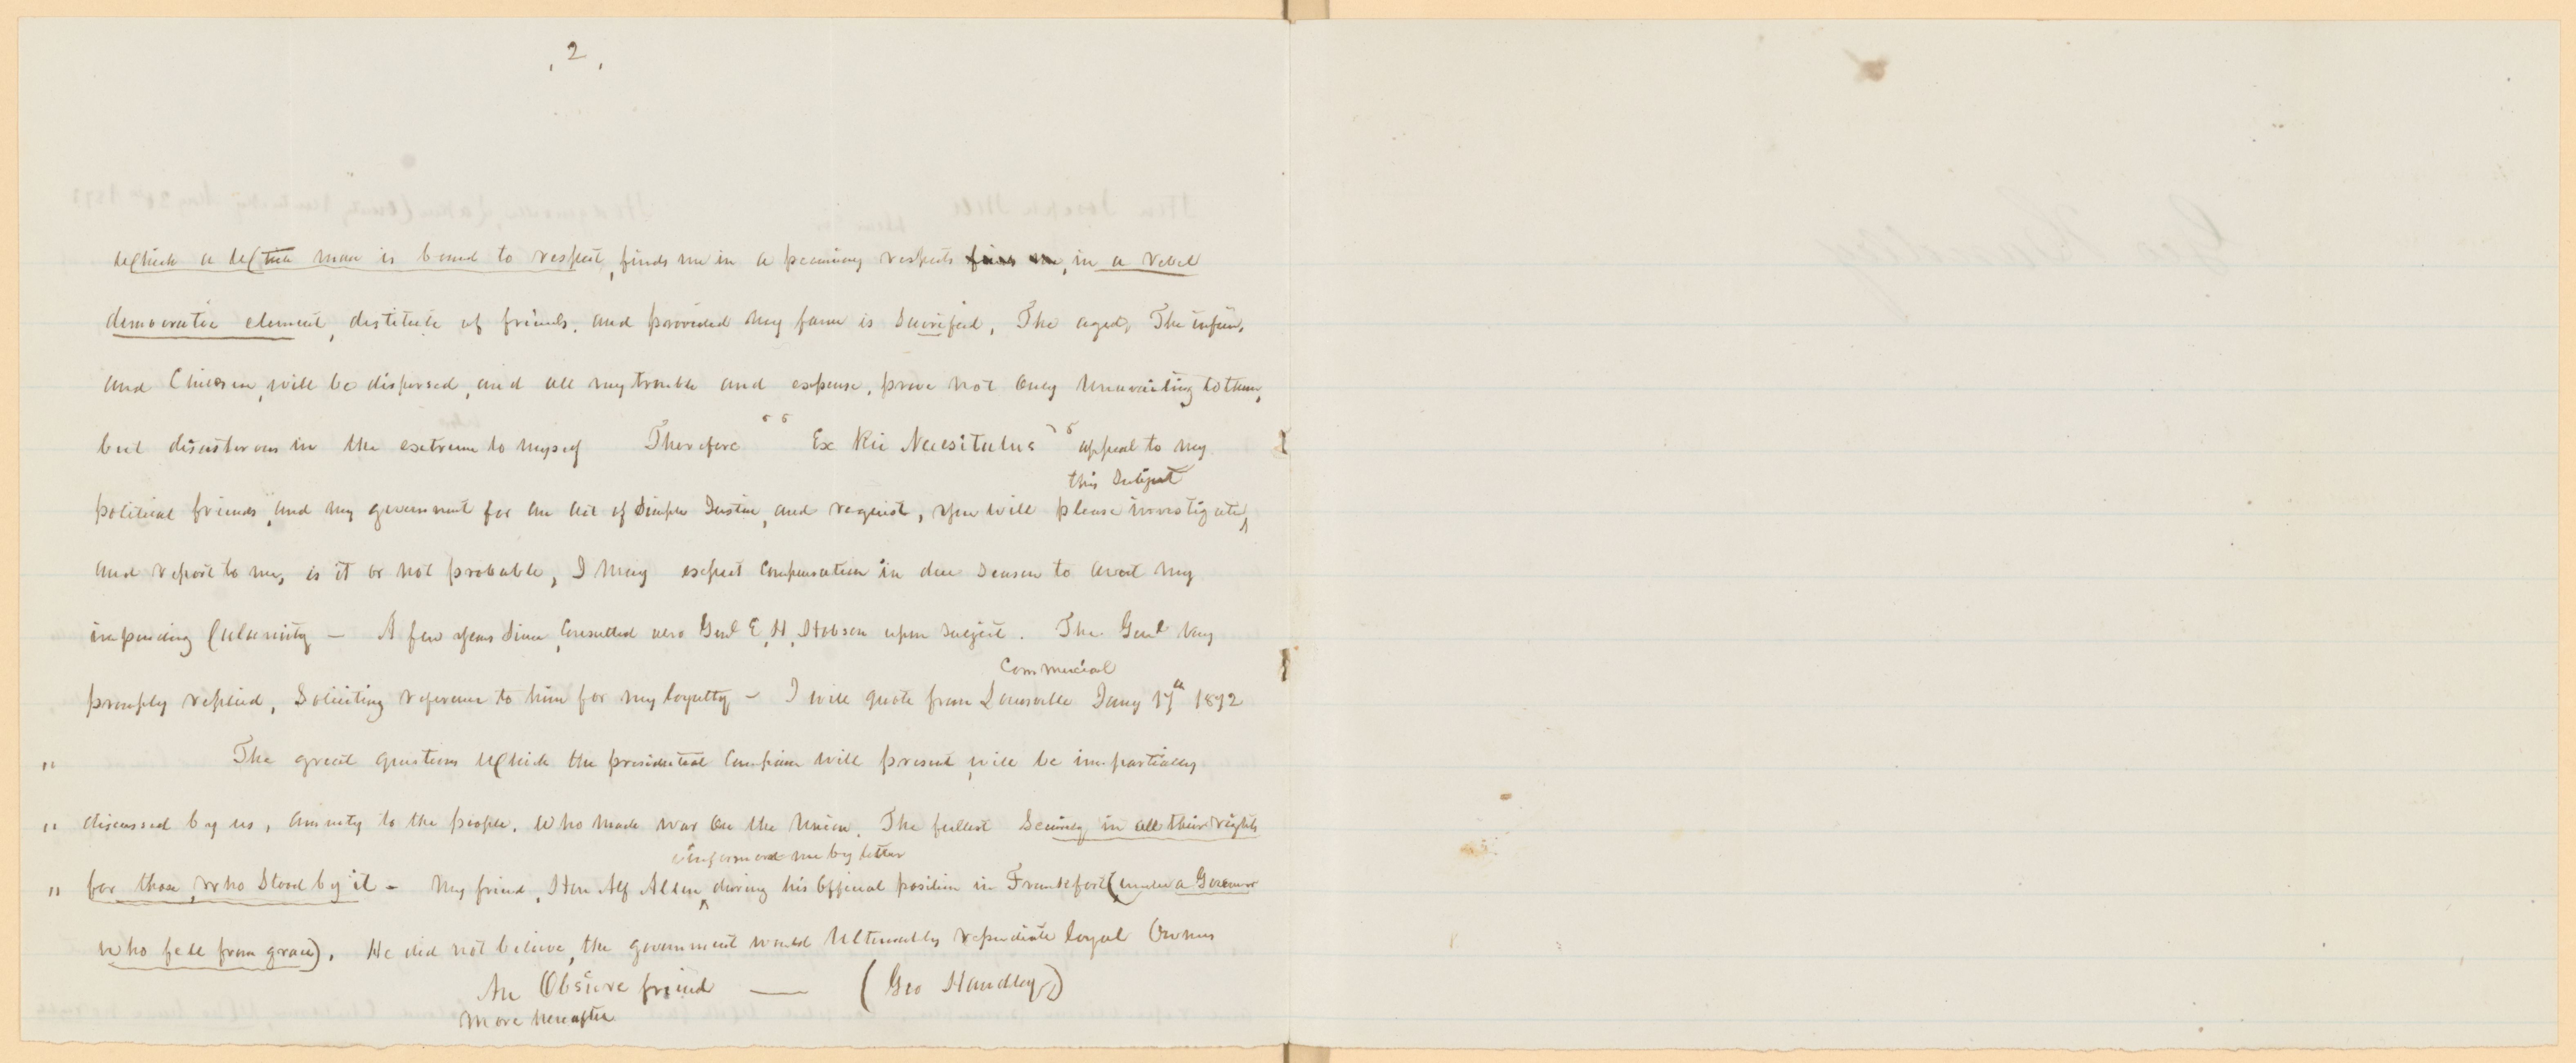 , 2 ,
which a white man is bound to respect, finds me in a pecuniary respects finds me, in a rebel
democratic element, destitute of friends, and provided my farm is Sacrifed, The aged, The infirm,
and Children, will be dispersed, and all my trouble and expense, prove not only Unavailing to them,
but disasterous in the extreme to myself Therefore " Ex Rei Necesitulus " appeal to my
this Subject
political friends, and my government for an act of Simple Justice, and request, you will please investigate,
and report to me, is it or not probable, I may expect Compensation in due Season to avert my
impending Calamity – A few years Since, Consulted also Genl E, H, Hobson upon Subject. The Genl very
Commercial
promply replied, Soliciting reference to him for my loyalty – I will quote from Louisville Jany 17th 1872
" The great questions which the presidential Campaign will present, will be impartially
" discussed by us, amnesty to the people, who made war on the Union. The fullest Security in all their rights
informed me by letter
" for those, who Stood by it – My friend, Hon Alf Allen, during his Official position in Frankfort (under a Governor
who fell from grace), He did not believe, the government would Ultimately repudiate loyal Owners
An Obscure friend — (Geo Handley)
More hereafter